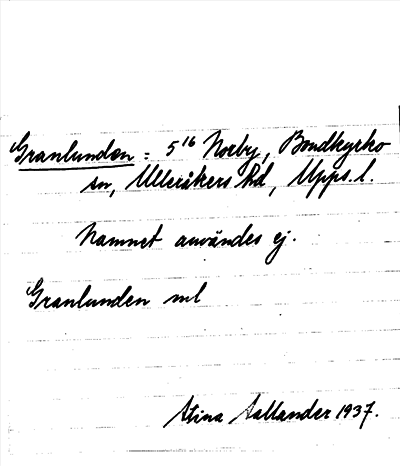 Granlunden = 5¹⁶ Norby, Bondkyrko
sn, Ulleråkers hd, Upps. l.
Namnet användes ej.
Granlunden ml
Stina Sallander 1937.